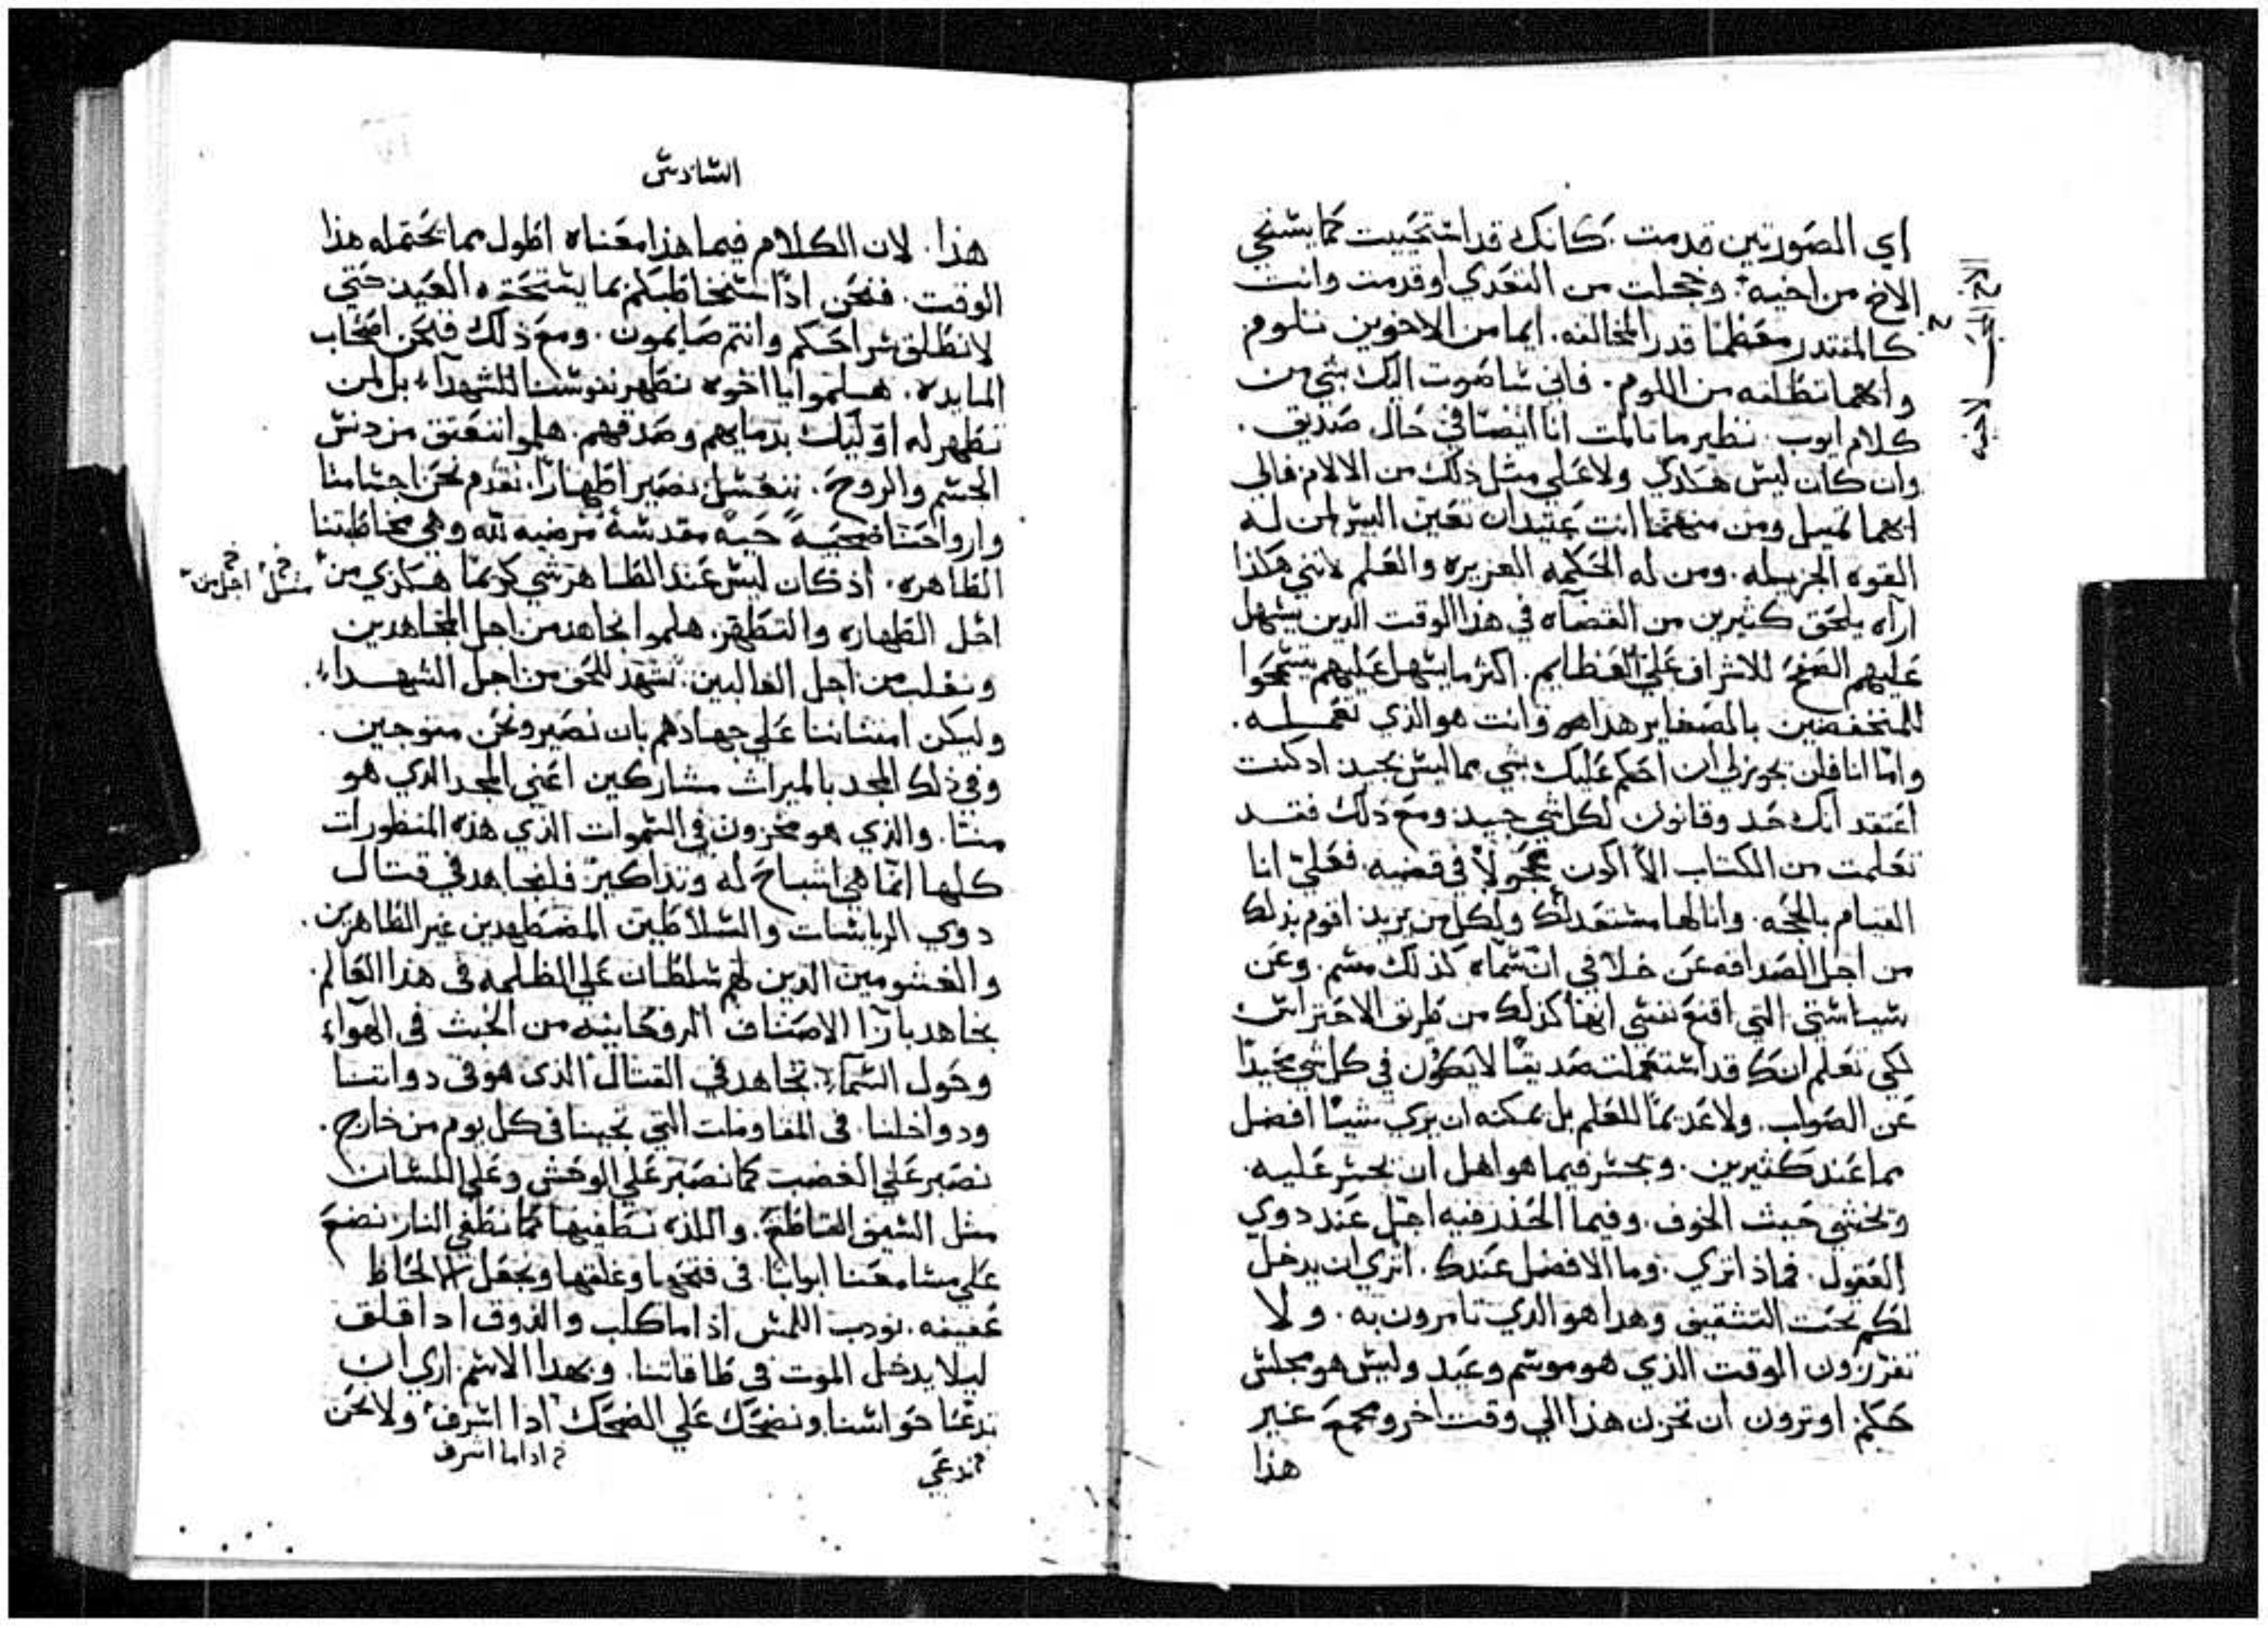 اي الصورتين قدمت. كانك قد استحييت كما يستحي
الاخ من اخيه. وخجلت من التعدي او قدمت وانت
كالمقتدر معظما قدر المخالفه. ايما من الاخوين نلوم
وايهما تطلقه من اللوم. فاني ساصوت اليك بشي من
كلام ايوب. نظير ما تالمت انا ايضا في حال صديق.
وان كان ليس هكذي ولا علي مثل ذلك من الالام فالي
ايهما تميل ومن منهما انت عتيد ان تعين اليس لمن له
القوه الجزيله. ومن له الحكمه الغزيره والعلم لانني هكذا
اراه يلحق كثيرين من القضاه في هذا الوقت الدين يسهل
عليهم الصفح للاشراف علي العظايم. اكثر ما يسهل عليهم يسمحوا
للمنخفضين بالصغاير هدا هو وانت هو الذي تعمله.
واما انا فلن يجوز لي ان احكم عليك بشي مما ليس بجيد اد كنت
اعتقد انك حد وقانون لكل شي جيد ومع ذلك فقد
تعلمت من الكتاب الا اكون عجولا في قضيه. فعلي انا
القيام بالحجه. وانا لها مستعد لك ولكل من يريد اقوم بذلك
من اجل الصداقه عن خلافي ان سماه كذلك مسم. وعن
سياستي التي اقنع نفسي انها كذلك من طريق الاحتراس
لكي تعلم انك قد استعملت صديقا لا يكون في كل شي محيدا
عن الصواب. ولا عديما للعلم بل يمكنه ان يري شيا افضل
مما عند كثيرين. ويجسر فيما هو اهل ان يجسر عليه.
ويخشي حيث الخوف. وفيما الحذر فيه اجل عند دوي
العقول. فماذا تري. وما الافضل عندك. اتري ان يدخل
لكم تحت التثقيف وهدا هو الدي تامرون به. ولا
تفرزون الوقت الذي هو موسم وعيد وليس هو مجلس
حكم. او ترون ان نخزن هذا الي وقت اخر ومجمع غير
هذا
الاخ
لاخيه
السادس
هذا. لان الكلام فيما هذا معناه اطول مما يحتمله هذا
الوقت. فنحن اذا سنخاطبكم بما يستحقه العيد حتي
لا نطلق سراحكم وانتم صايمون. ومع ذلك فنحن اصحاب
المايده. هلموا يا اخوه نطهر نفوسنا للشهداء بل لمن
تطهر له اوليك بدمايهم وصدقهم. هلموا ننعتق من دنس
الجسم والروح. نغتسل نصير اطهارا. نقدم نحن اجسامنا
وارواحنا ضحيه حيه مقدسه مرضيه لله وهي مخاطبتنا
الظاهره. اذ كان ليس عند الطاهر شي كريما هكذي من
مثل اجل من
اجل الطهاره والتطهر. هلموا نجاهد من اجل المجاهدين
ونغلب من اجل الغالبين. نشهد للحق من اجل الشهداء.
وليكن امتناننا علي جهادهم بان نصير ونحن متوجين.
وفي ذلك المجد بالميراث مشاركين اعني المجد الدي هو
منا. والذي هو مخزون في السموات الذي هذه المنظورات
كلها انما هي اشباح له وتذاكير فلنجاهد في قتال
دوي الرياسات والسلاطين المضطهدين غير الظاهرين.
والغشومين الدين لهم سلطان علي الظلمه في هذا العالم.
نجاهد بازا الاصناف الروحانيه من الخبث في الهواء
وحول السماء. نجاهد في القتال الذي هو في دواتنا
ودواخلنا. في المقاومات التي تجينا في كل يوم من خارج.
نصبر علي الغضب كما نصبر علي الوحش وعلي اللسان
مثل السيف القاطع. واللذه نطفيها كما نطفي النار نضع
علي مسامعنا ابوابا. في فتحها وغلقها ونجعل الالحاظ
عفيفه. نودب اللمس اذا ما كلب والذوق ادا قلق
ليلا يدخل الموت في طاقاتنا. وبهدا الاسم اري ان
ندعا حواسنا ونضحك علي الضحك اذا اشرف ولا نحن
ندعي
اذا ما اشرف